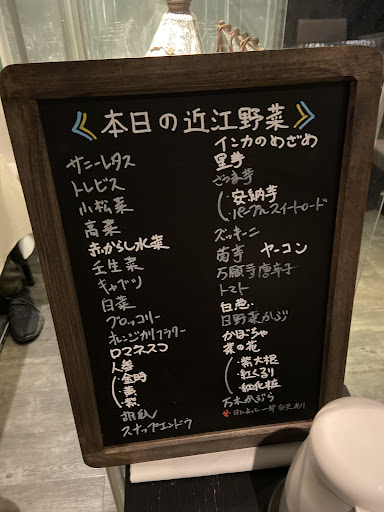 本日の近江野菜
サニーレタス
トレビス
小松菜
高菜
赤からし水菜
壬生菜
キャベツ
白菜
ブロッコリー
オレンジカリフラワー
ロマネスコ
人参
・金時
・黄
・紫
胡瓜
スナップエンドウ
インカのめざめ
里芋
さつま芋
・安納芋
・パープルスイートロード
ズッキーニ
菊芋 ヤーコン
万願寺唐辛子
トマト
白葱
日野菜かぶ
かぼちゃ
菜の花
・紫大根
・紅くるり
・紅化粧
万木かぶら
※日によって一部変更あり